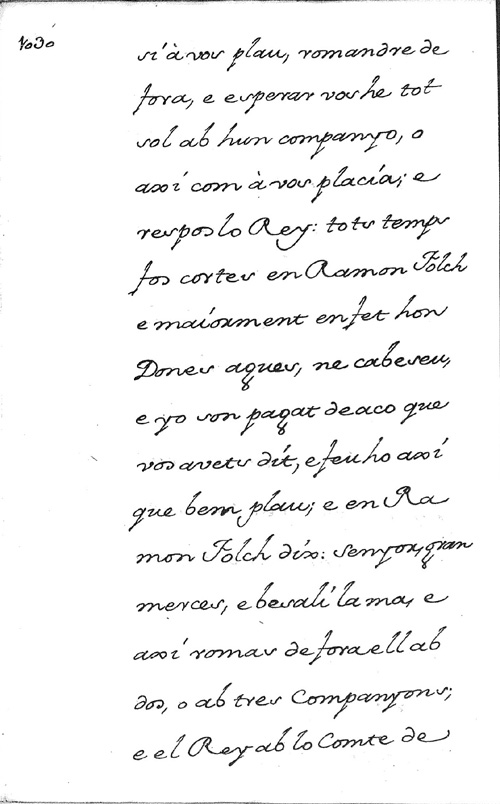 1030
si à vos plau, romandre de
fora, e esperar vos he tot
sol ab hun companyo, o
axi com à vos placia; e
respos lo Rey: tots temps
fos cortes en Ramon Folch
e maiorment en fet hon
Dones agues, ne cabeseu,
e yo son pagat de aco que
vos avets dit, e feu ho axi
que bem plau; e en Ra
mon Folch dix: senyor, gran
merces, e besali la ma, e
axi romas de fora ell ab
dos, o ab tres Companyons;
e el Rey ab lo Comte de